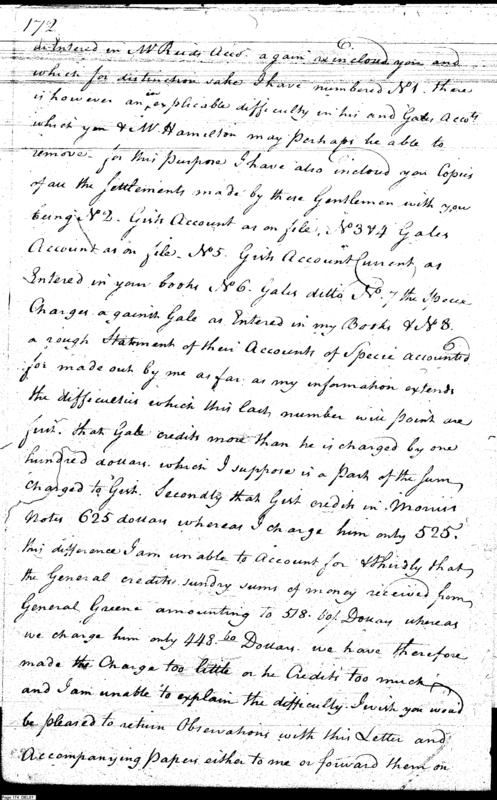 172
as Entered in Mr Reeds Accot. again inclosed you and
which for distinction sake I have numbered No 1. there
is however an inexplicable difficulty in his and Gales Accots
which you & Mr Hamilton may perhaps be able to
remove. for this purpose I have also inclosed you Copies
of all the settlements made by these Gentlemen with you
being No 2. Girts Account as on file, No 3 & 4 Gales
Account as on file. No 5. Girts Account Current as
Entered in your books No 6. Gales ditto No 7 the Specie
Charges against Gale as Entered in my Books & No 8.
a rough Statement of their Accounts of Specie accounted
for made out by me as far as my information extends
the difficulties which this last number will point are
first. that Gale credits more than he is charged by one
hundred dollars. which I suppose is a Part of the Sum
charged to Girt. Secondly that Girt credits in Morris
Notes 625 dollars whereas I charge him only 525.
this difference I am unable to Account for & thirdly that
the General credits sundry sums of money received from
General Greene amounting to 518. Dollars whereas
we charge him only 448.60 Dollars. we have therefore
made the Charge too little or he Credits too much
and I am unable to explain the difficulty. I wish you would
be pleased to return Observations with this Letter and
Accompanying Papers either to me or forward them on